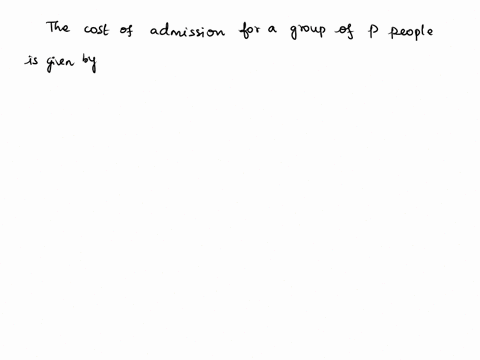 The cost of admission for a group of p people
is given by